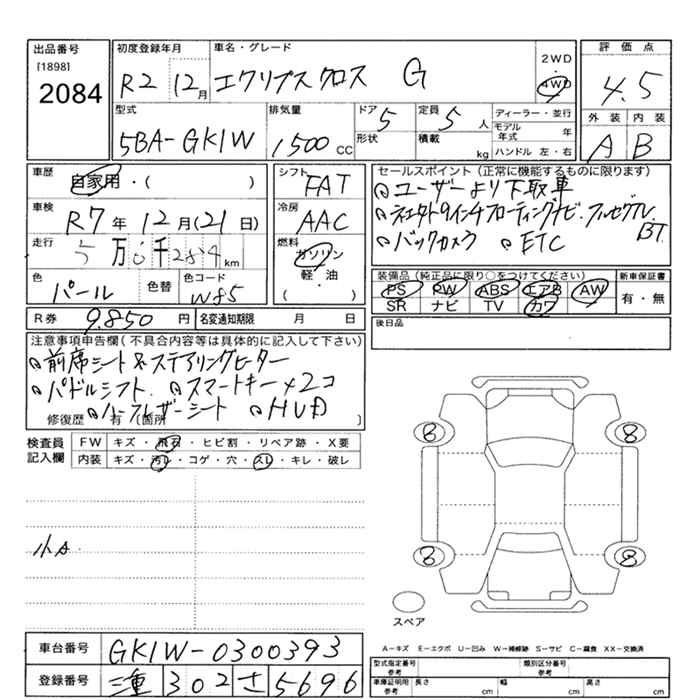 出品番号 初度登録年月 車名・グレード 評価点
[1898]
2084
R2 12月 エクリプス クロス G
2WD
4WD
4.5
型式 排気量 ドア 5 定員 5人 ディーラー・並行
5BA-GK1W 1500 CC 形状 積載 kg モデル年式 年
ハンドル 左・右
外装 内装
A B
車歴 自家用・( ) シフト FAT
車検 R7年 12月(21日) 冷房 AAC
走行 5万 千 km 燃料 ガソリン
軽・油
( )
色 パール 色替 色コード W85
R券 9,850 円 名変通知期限 月 日
セールスポイント(正常に機能するものに限ります)
ユーザーより下取車
フローティングナビ. フルセグTV.
BT
バックカメラ ETC
装備品(純正品に限り○をつけてください) 新車保証書
PS PW ABS エアB AW 有・無
SR ナビ TV カワ
後日品
注意事項申告欄(不具合内容等は具体的に記入して下さい)
前席シート&ステアリングヒーター
パドルシフト. スマートキー×2コ
ハーフレザーシート HUD
修復歴 有 (箇所 )
検査員 FW キズ・飛石・ヒビ割・リペア跡・X要
記入欄 内装 キズ・汚レ・コゲ・穴・スレ・キレ・破レ
小A
8 8
8 8
スペア
車台番号 GK1W-0300393
登録番号 三重 302 さ 5696
A=キズ E=エクボ U=凹み W=補修跡 S=サビ C=腐食 XX=交換済
型式指定番号 類別区分番号
参考 参考
車庫証明用 長さ 幅 高さ
参考 cm cm cm